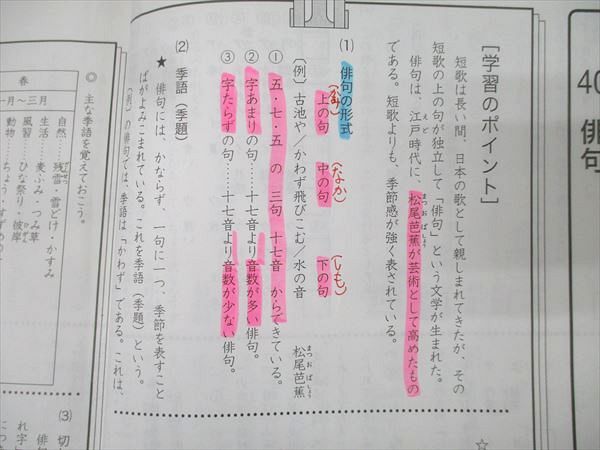 40
俳句
[学習のポイント]
短歌は長い間、日本の歌として親しまれてきたが、その
短歌の上の句が独立して「俳句」という文学が生まれた。
俳句は、江戸時代に、松尾芭蕉が芸術として高めたもの
えど
まつおばしょう
である。短歌よりも、季節感が強く表されている。
(1) 俳句の形式
上の句 中の句 下の句
(かみ) (なか) (しも)
〔例〕 古池や／かわず飛びこむ／水の音 松尾芭蕉
まつおばしょう
① 五・七・五 の 三句 十七音 からできている。
② 字あまりの句……十七音より音数が多い俳句。
③ 字たらずの句……十七音より音数が少ない俳句。
(2) 季語（季題）
★ 俳句には、かならず、一句に一つ、季節を表すこと
ばがよみこまれている。これを季語（季題）という。
〔例〕の俳句では、季語は「かわず」である。これは、
◎ 主な季語を覚えておこう。
春
一月～三月
自然… 残雪・雪どけ・かすみ
生活… 麦ふみ・つみ草
風習… ひな祭り・彼岸
動物…
(3) 切
俳句
れ字